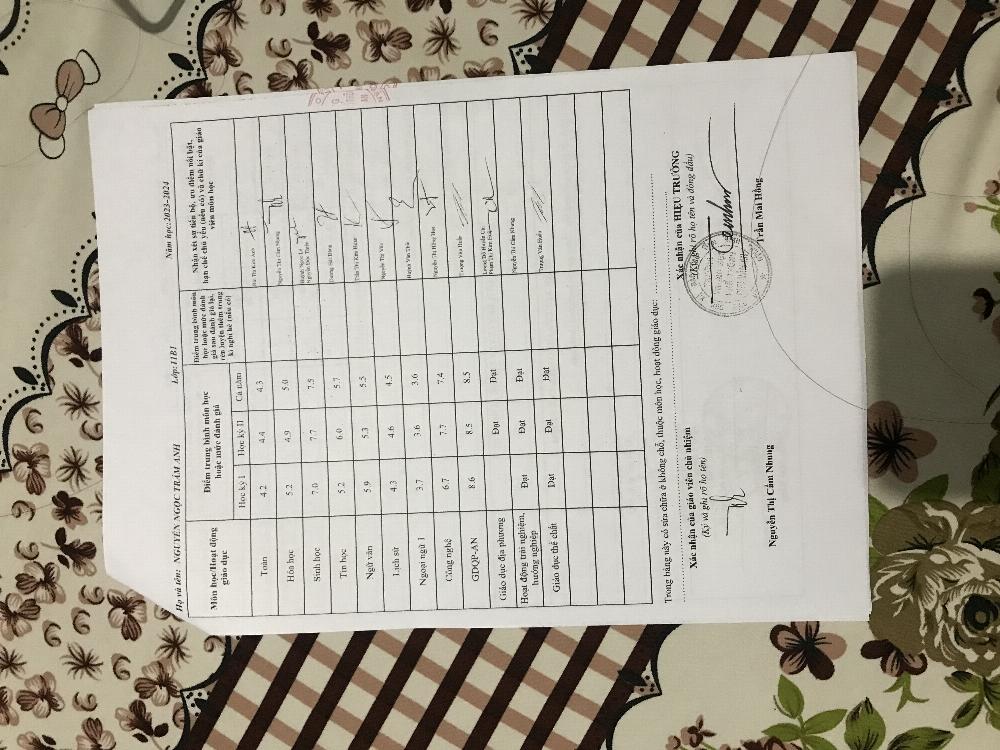 Họ và tên: NGUYỄN NGỌC TRÂM ANH Lớp:11B1 Năm học:2023-2024
Môn học/Hoạt động giáo dục
Điểm trung bình môn học hoặc mức đánh giá
Điểm trung bình môn học hoặc mức đánh giá sau đánh giá lại, rèn luyện thêm trong kì nghỉ hè (nếu có)
Nhận xét sự tiến bộ, ưu điểm nổi bật, hạn chế chủ yếu (nếu có) và chữ kí của giáo viên môn học
Học kỳ I Học kỳ II Cả năm
Toán 4.2 4.4 4.3
Hóa học 5.2 4.9 5.0 Nguyễn Thị Cẩm Nhung
Sinh học 7.0 7.7 7.5
Tin học 5.2 6.0 5.7
Ngữ văn 5.9 5.3 5.5
Lịch sử 4.3 4.6 4.5
Ngoại ngữ 1 3.7 3.6 3.6
Công nghệ 6.7 7.7 7.4
GDQP-AN 8.6 8.5 8.5
Giáo dục địa phương Đạt
Hoạt động trải nghiệm, hướng nghiệp Đạt Đạt Đạt Nguyễn Thị Cẩm Nhung
Giáo dục thể chất Đạt Đạt Đạt
Trong bảng này có sửa chữa ở không chỗ, thuộc môn học, hoạt động giáo dục:
Xác nhận của giáo viên chủ nhiệm
(Ký và ghi rõ họ tên)
Nguyễn Thị Cẩm Nhung
Xác nhận của HIỆU TRƯỞNG
(Ký, ghi rõ họ tên và đóng dấu)
Trần Mai Hồng